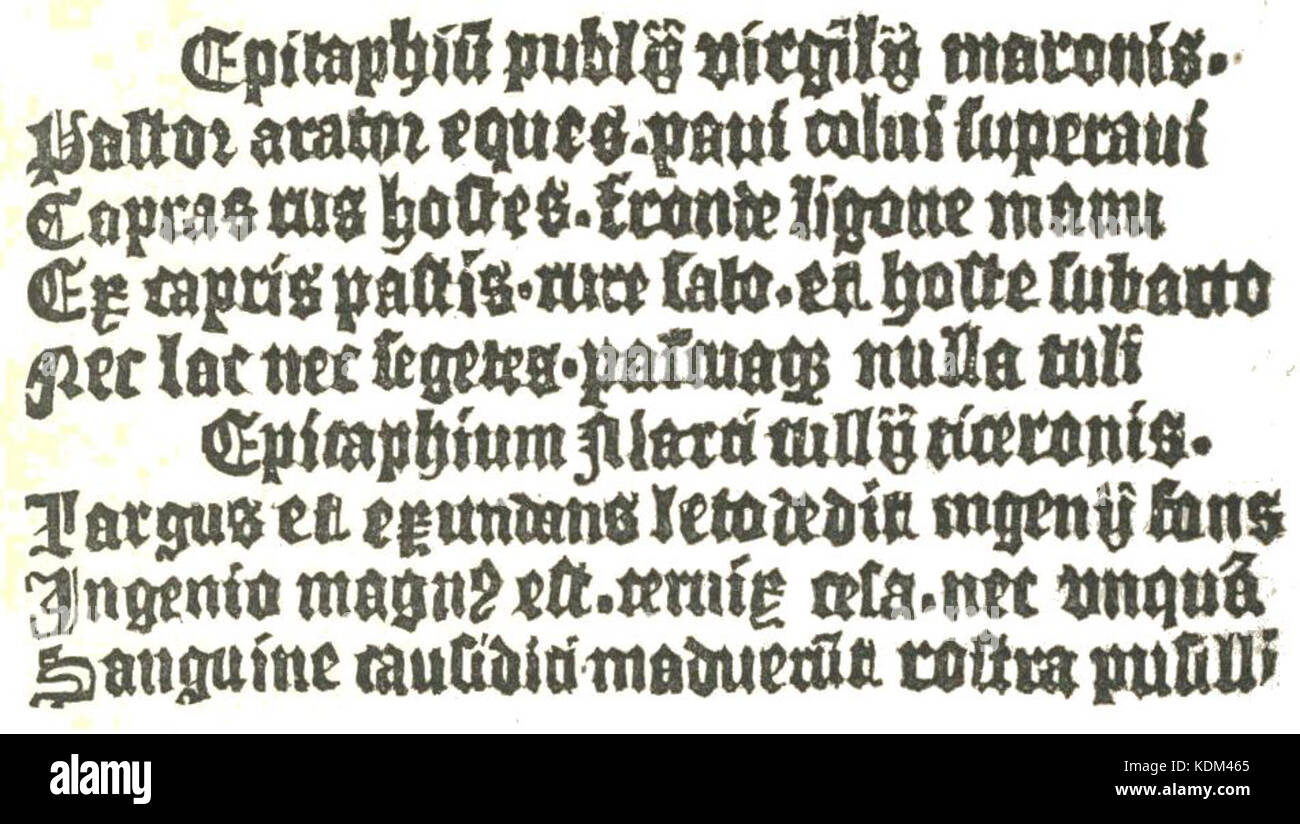 Epitaphiū publij̈ virgilij̈ maronis.
Pastor arator eques.paui colui superaui
Capras rus hostes.fronde ligone manu
Ex capris pastis.rure sato.et hoste subacto
Nec lac nec segetes. nulla tuli
Epitaphium Marci tullij̈ ciceronis.
Largus et exundans leto dedit ingenij̈ fons
Ingenio magnꝰ est.ceruix cesa.nec vnquā
Sanguine causidici maduerūt rostra pusilli
alamy
Image ID: KDM465
www.alamy.com